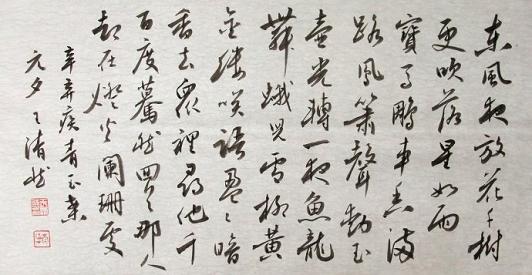 東風夜放花千樹
更吹落星如雨
寶馬鵰車香滿
路鳳簫聲動玉
壺光轉一夜魚龍
舞蛾兒雪柳黃
金縷笑語盈々暗
香去眾裡尋他千
百度驀然回首那人
卻在燈火闌珊處
辛弃疾青玉案
元夕